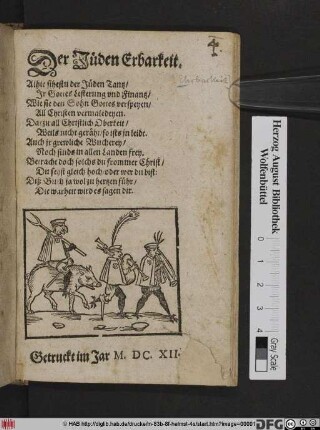 Der Jüden Erbarkeit.
4.
Alhie sihestu der Jüden Tantz/
Ir Gottes lesterung vnd Finantz/
Wie sie den Sohn Gottes verspeyen/
All Christen vermaledeyen.
Darzu all Christlich Oberkeit/
Weils nicht geräht/ so ists jn leidt.
Auch jr grewliche Wucherey/
Noch sinds in allen Landen frey.
Betracht doch solchs du frommer Christ/
Du seyst gleich hoch oder wer du bist:
Diß Buch ja wol zu hertzen führ/
Die warheit wird es sagen dir.
Getruckt im Jar M. DC. XII.
Herzog August Bibliothek
Wolfenbüttel
0
1
2
3
4
Gray Scale
© HAB http://diglib.hab.de/drucke/
DFG